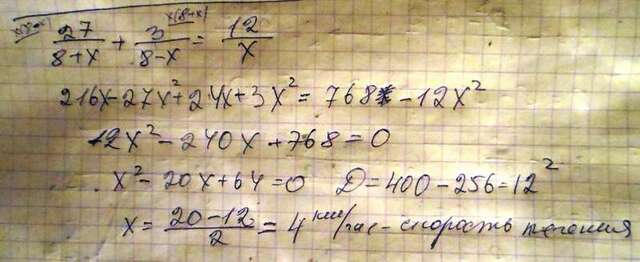 x(8-x) 27/(8+x) + 3/(8-x) x(8+x) = 12/x
216x-27x²+24x+3x²=768-12x²
12x²-240x+768=0
x²-20x+64=0 D=400-256=12²
x=(20-12)/2=4 км/час - скорость течения